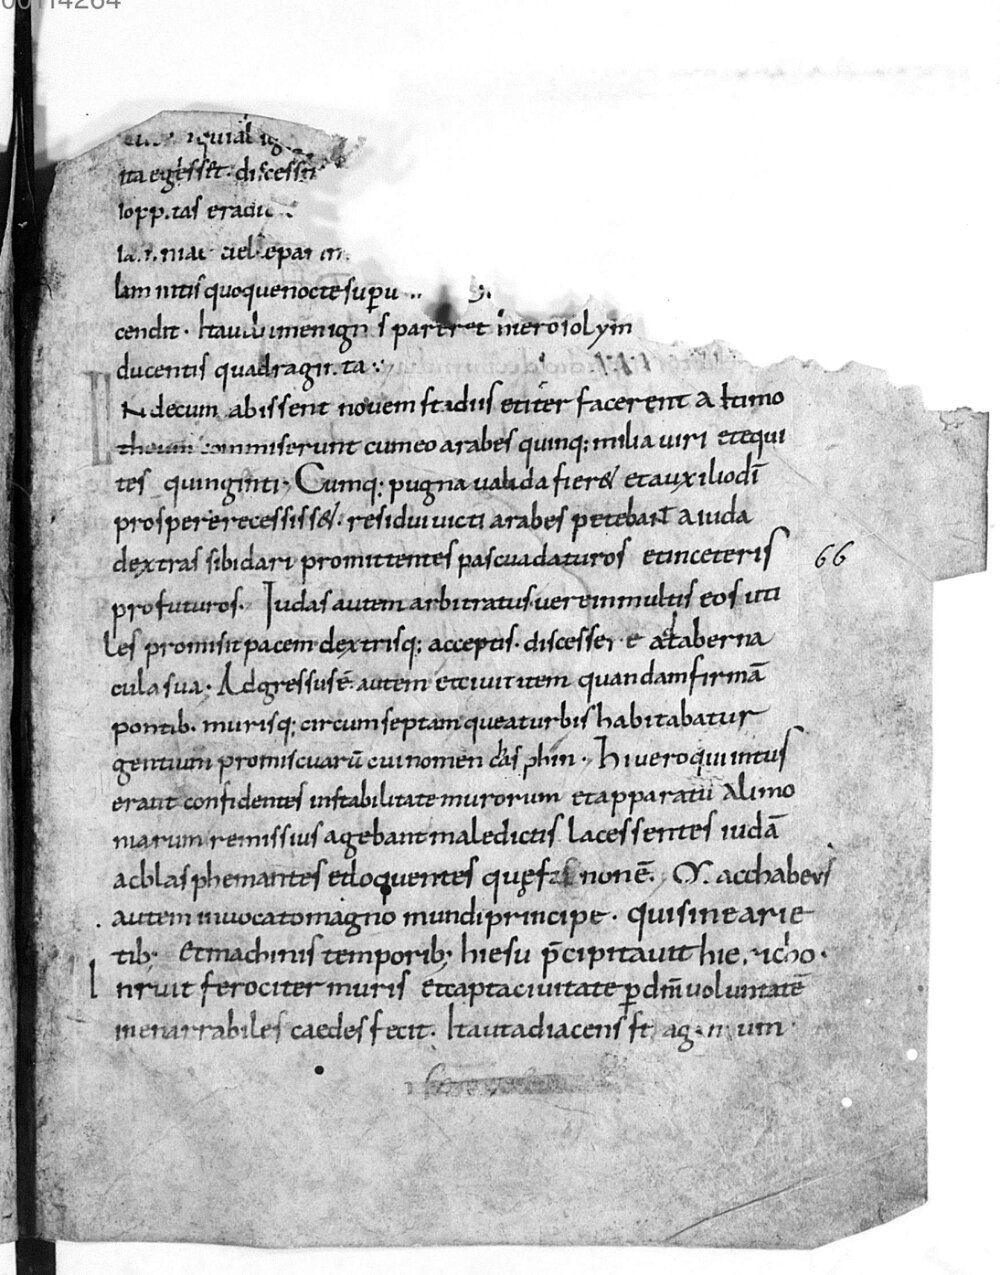 00114264
ita egesset. discessit
iopp.tas eradic
iam nitis quoque nocte sup̄u
cendit. Ita ut lumen ignis pareret hierosolym
ducentis quadraginta
INdecum abissent novem stadiis et iter facerent ad timo
theum commiserunt cum eo arabes quinq; milia viri et equi
tes quingenti. Cumq; pugna valida fier& et auxilio dī
prospere recessiss&. residui victi arabes petebant a iuda
dextras sibi dari promittentes pascua daturos et in ceteris
66
profuturos. Iudas autem arbitratus vere in multis eos uti
les promisit pacem dextrisq; acceptis. discesser e ad taberna
cula sua. Adgressus ē. autem et civitatem quandam firmā
pontib. murisq; circumseptam quea turbis habitabatur
gentium promiscuarū cui nomen casphin. Hi vero qui intus
erant confidentes in stabilitate murorum et apparatu alimo
niarum remissius agebant maledictis lacessentes iudā
ac blasphemantes et loquentes quę fas non ē. Macchabeus
autem invocato magno mundi principe. qui sine arie
tib; Et machinis temporib; hiesu p̄cipitavit hiericho.
Inruit ferociter muris et capta civitate p dm̄ voluntatē
inenarrabiles caedes fecit. Ita ut adiacens stagnum